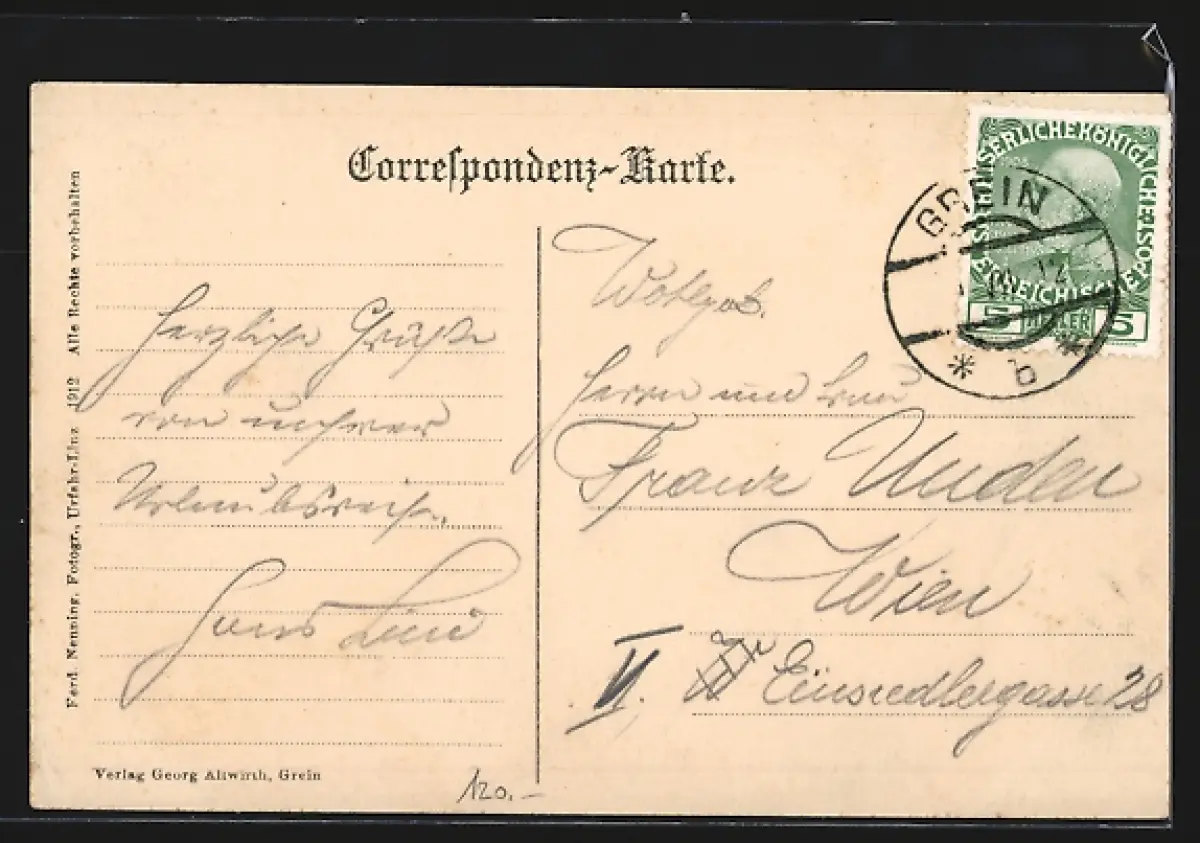 Correspondenz-Karte.
KAISERLICHE KÖNIGLICHE ÖSTERREICHISCHE POST
1908
5 HELLER 5
GREIN
* b *
Herzliche Grüße
von unserer
Urlaubsreise.
Hans
Wohlgeb.
Herrn und Frau
Franz
Wien
V. Einsiedlergasse 28
Ferd. Nenning, Fotogr., Urfahr-Linz 1912 Alle Rechte vorbehalten
Verlag Georg Altwirth, Grein
120.-